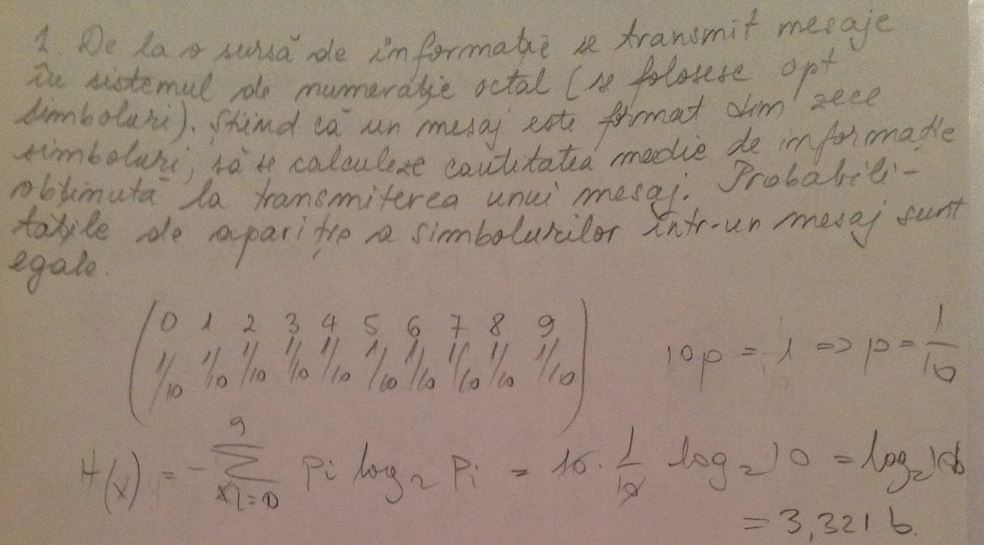 1. De la o sursă de informație se transmit mesaje
în sistemul de numerație octal (se folosesc opt
simboluri). Știind că un mesaj este format dim zece
simboluri, să se calculeze cantitatea medie de informație
obținută la transmiterea unui mesaj. Probabili-
tățile de apariție a simbolurilor într-un mesaj sunt
egale.
0 1 2 3 4 5 6 7 8 9
1/10 1/10 1/10 1/10 1/10 1/10 1/10 1/10 1/10 1/10
10p = 1 => p = 1/10
H(X) = - Σ pi log2 pi = 10 · 1/10 log2 10 = log2 10
= 3,321 b.